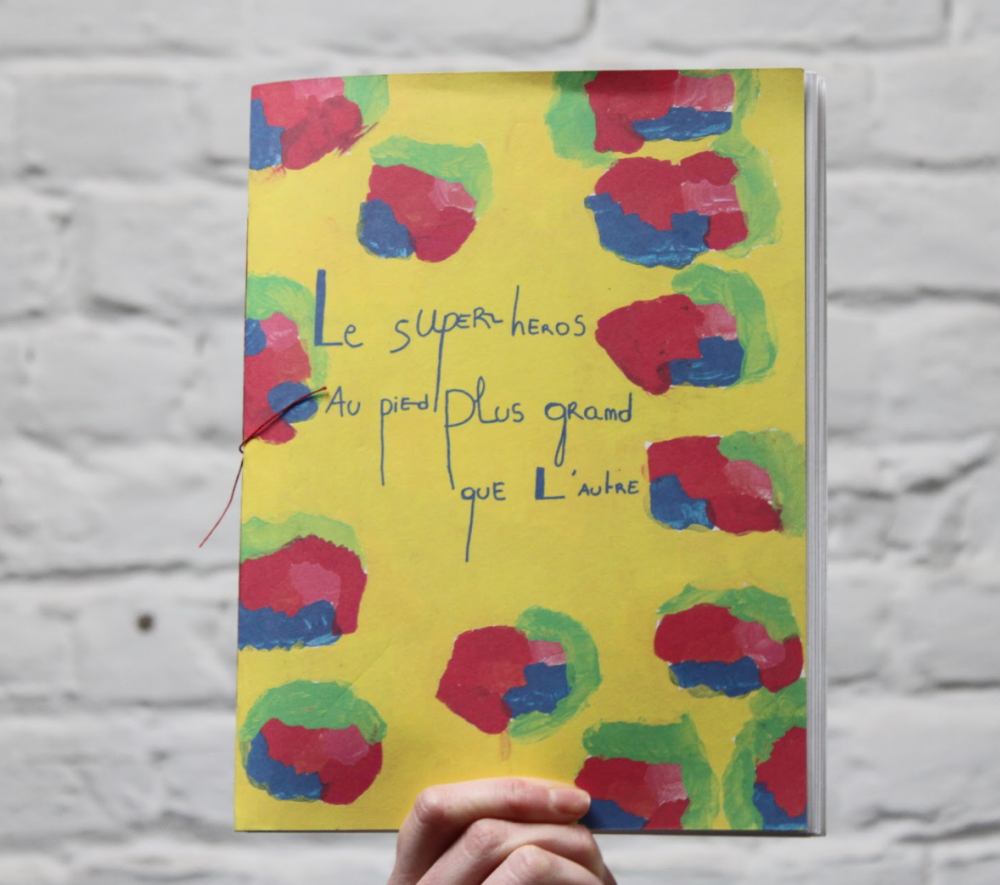 Le super-heros
Au pied plus gramd
que L'autre